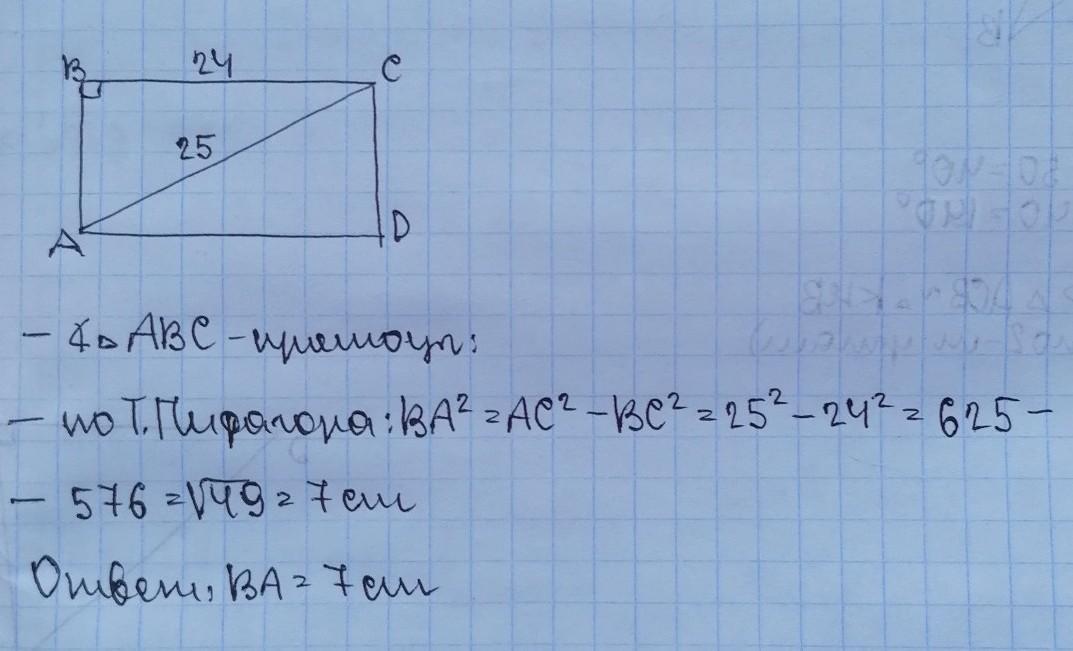 B 24 C
25
A D
- ∢△ABC - прямоуг:
- по Т.Пифагора: BA² = AC² - BC² = 25² - 24² = 625 -
- 576 = √49 = 7 см
Ответ: BA = 7 см